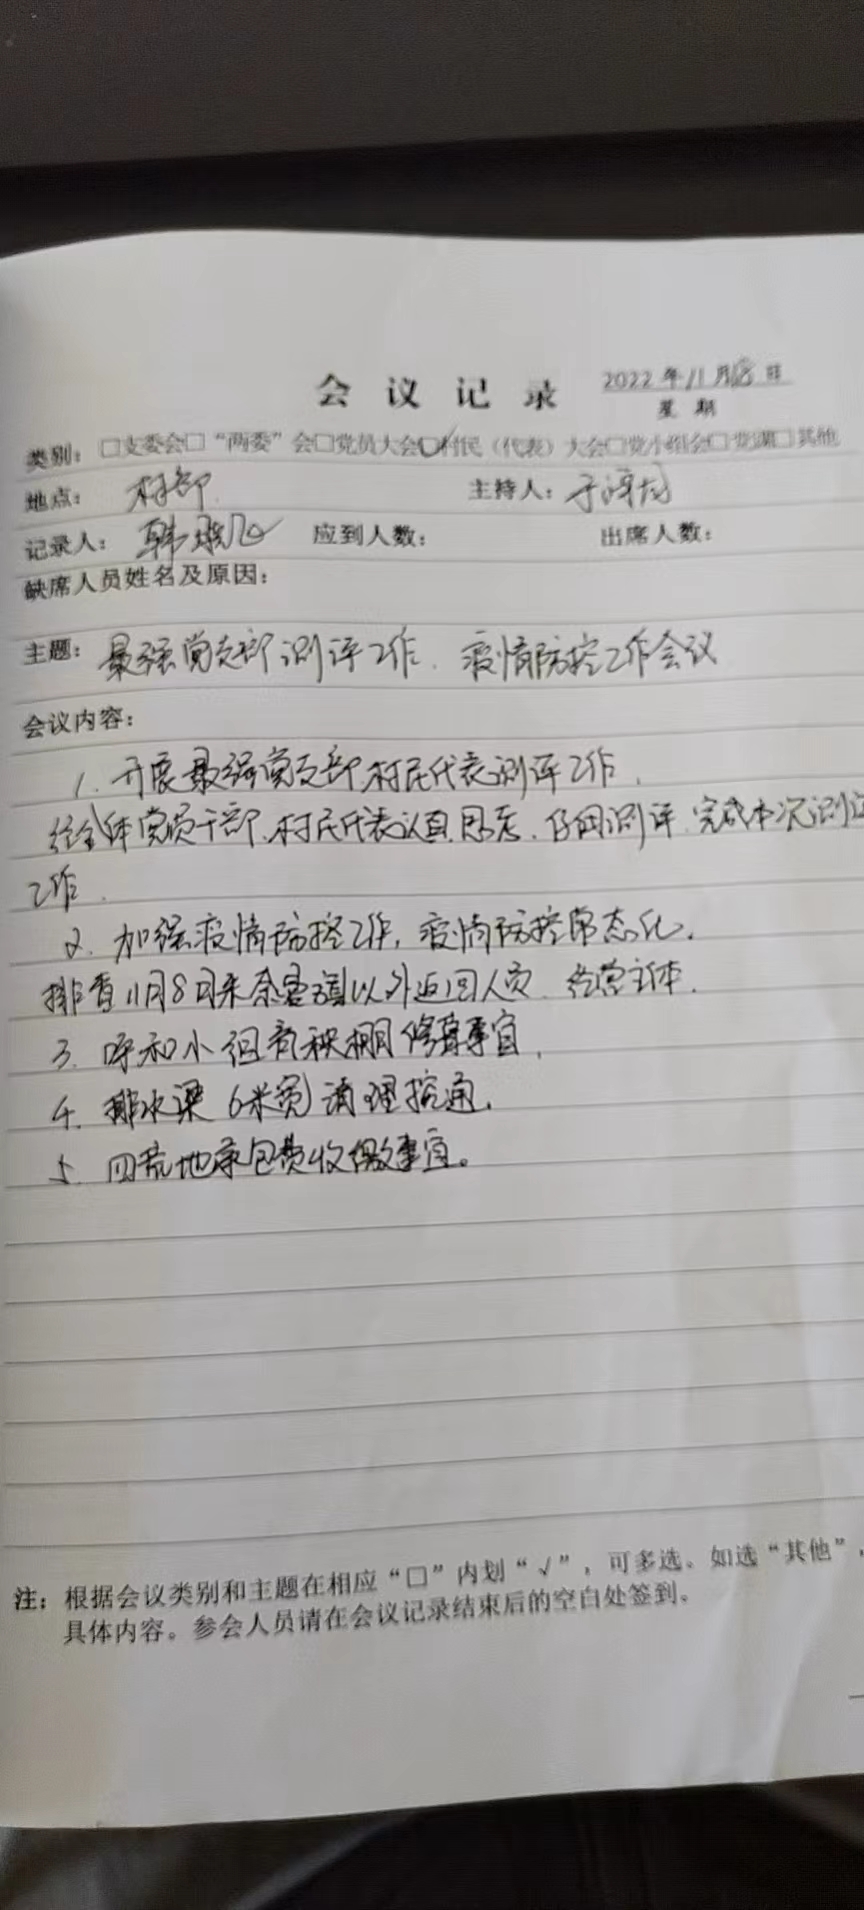 会议记录
2022年11月18日
星期
类别：□支委会□“两委”会□党员大会☑村民（代表）大会□党小组会□党课□其他
地点：村部 主持人：于
记录人：韩晓飞 应到人数： 出席人数：
缺席人员姓名及原因：
主题：最强党支部测评工作、疫情防控工作会议
会议内容：
1. 开展最强党支部村民代表测评工作.
经全体党员干部、村民代表认真思考、仔细测评、完成本次测评
工作.
2. 加强疫情防控工作，疫情防控常态化.
排查11月8日来奈曼旗以外返回人员、经营主体.
3. 呼和小组育秧棚修育事宜.
4. 排水渠（6米宽）清理挖通.
5. 四荒地承包费收缴事宜。
注：根据会议类别和主题在相应“□”内划“√”，可多选。如选“其他”，
具体内容。参会人员请在会议记录结束后的空白处签到。